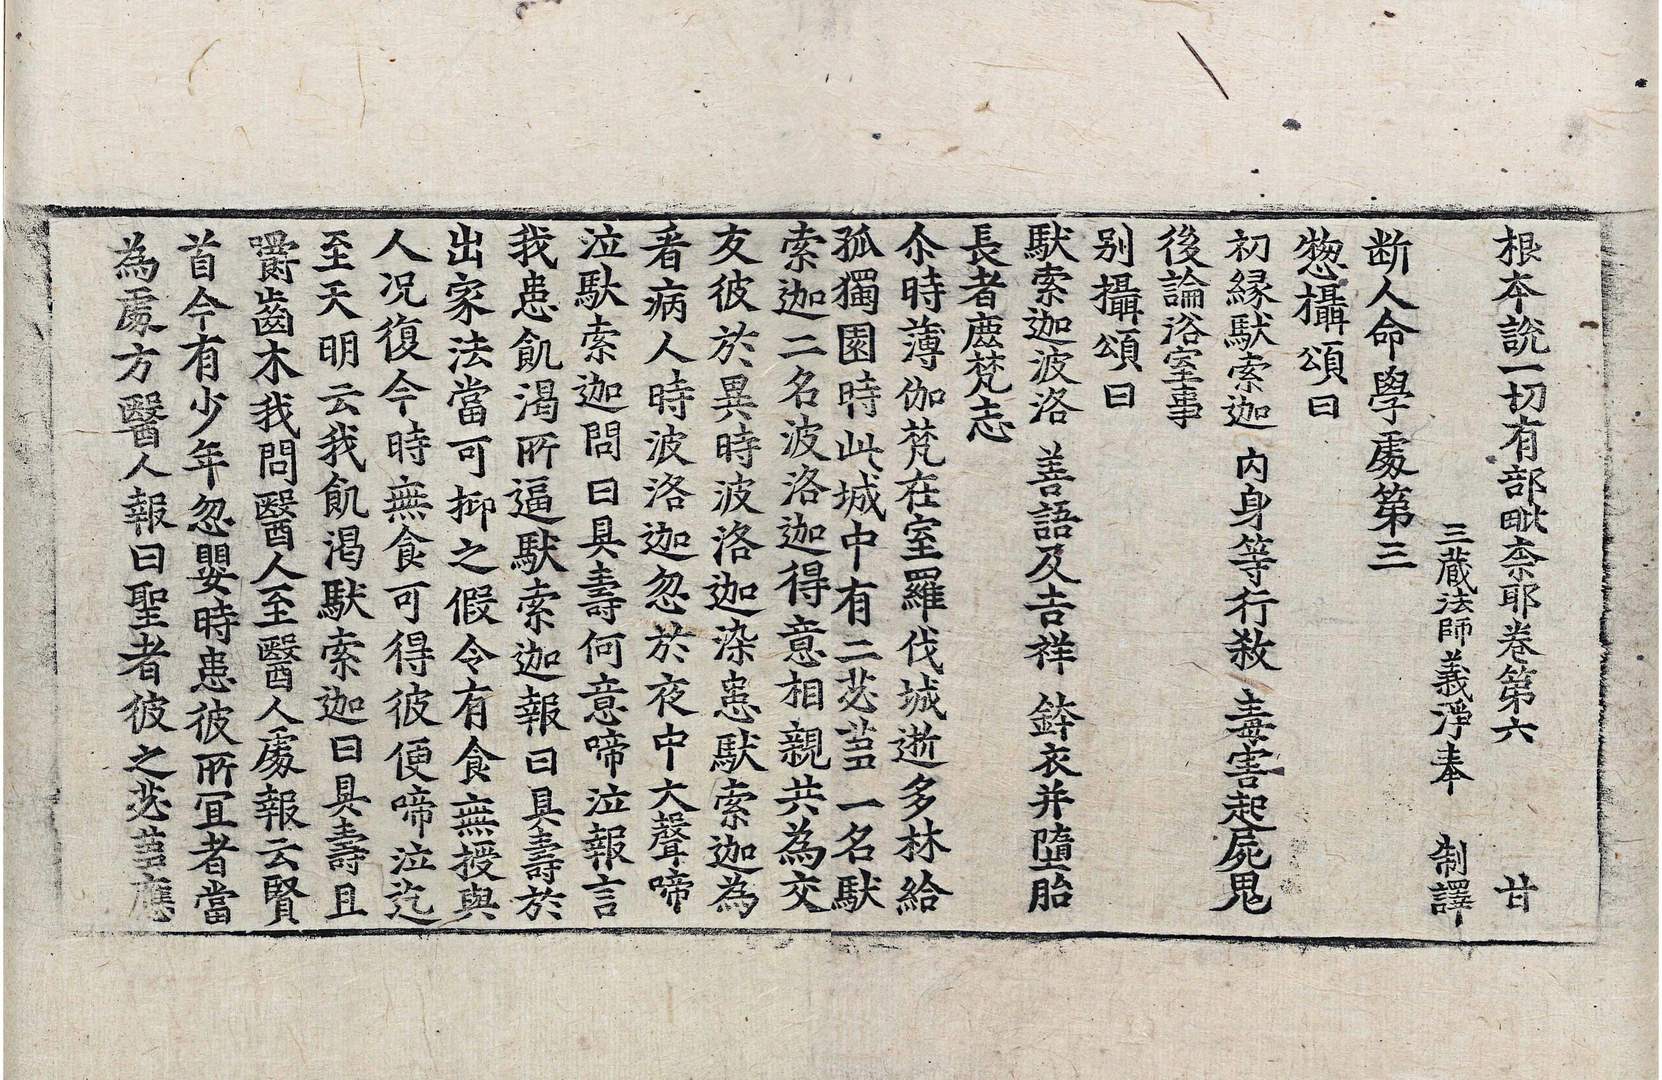 根本說一切有部毗柰耶卷第六 甘
三藏法師義淨奉 制譯
断人命學處第三
惣攝頌曰
初縁䭾索迦 内身等行殺 毒害起屍鬼
後論浴室事
别攝頌曰
䭾索迦波洛 善語及吉祥 鉢衣并墮胎
長者鹿梵志
尒時薄伽梵在室羅伐城逝多林給
孤獨園時此城中有二苾芻一名䭾
索迦二名波洛迦得意相親共為交
友彼於異時波洛迦染患䭾索迦為
看病人時波洛迦忽於夜中大聲啼
泣䭾索迦問曰具壽何意啼泣報言
我患飢渴所逼䭾索迦報曰具壽於
出家法當可抑之假令有食無授與
人况復今時無食可得彼便啼泣迄
至天明云我飢渴䭾索迦曰具壽且
嚼齒木我問醫人至醫人處報云賢
首今有少年忽嬰時患彼所冝者當
為處方醫人報曰聖者彼之苾芻應